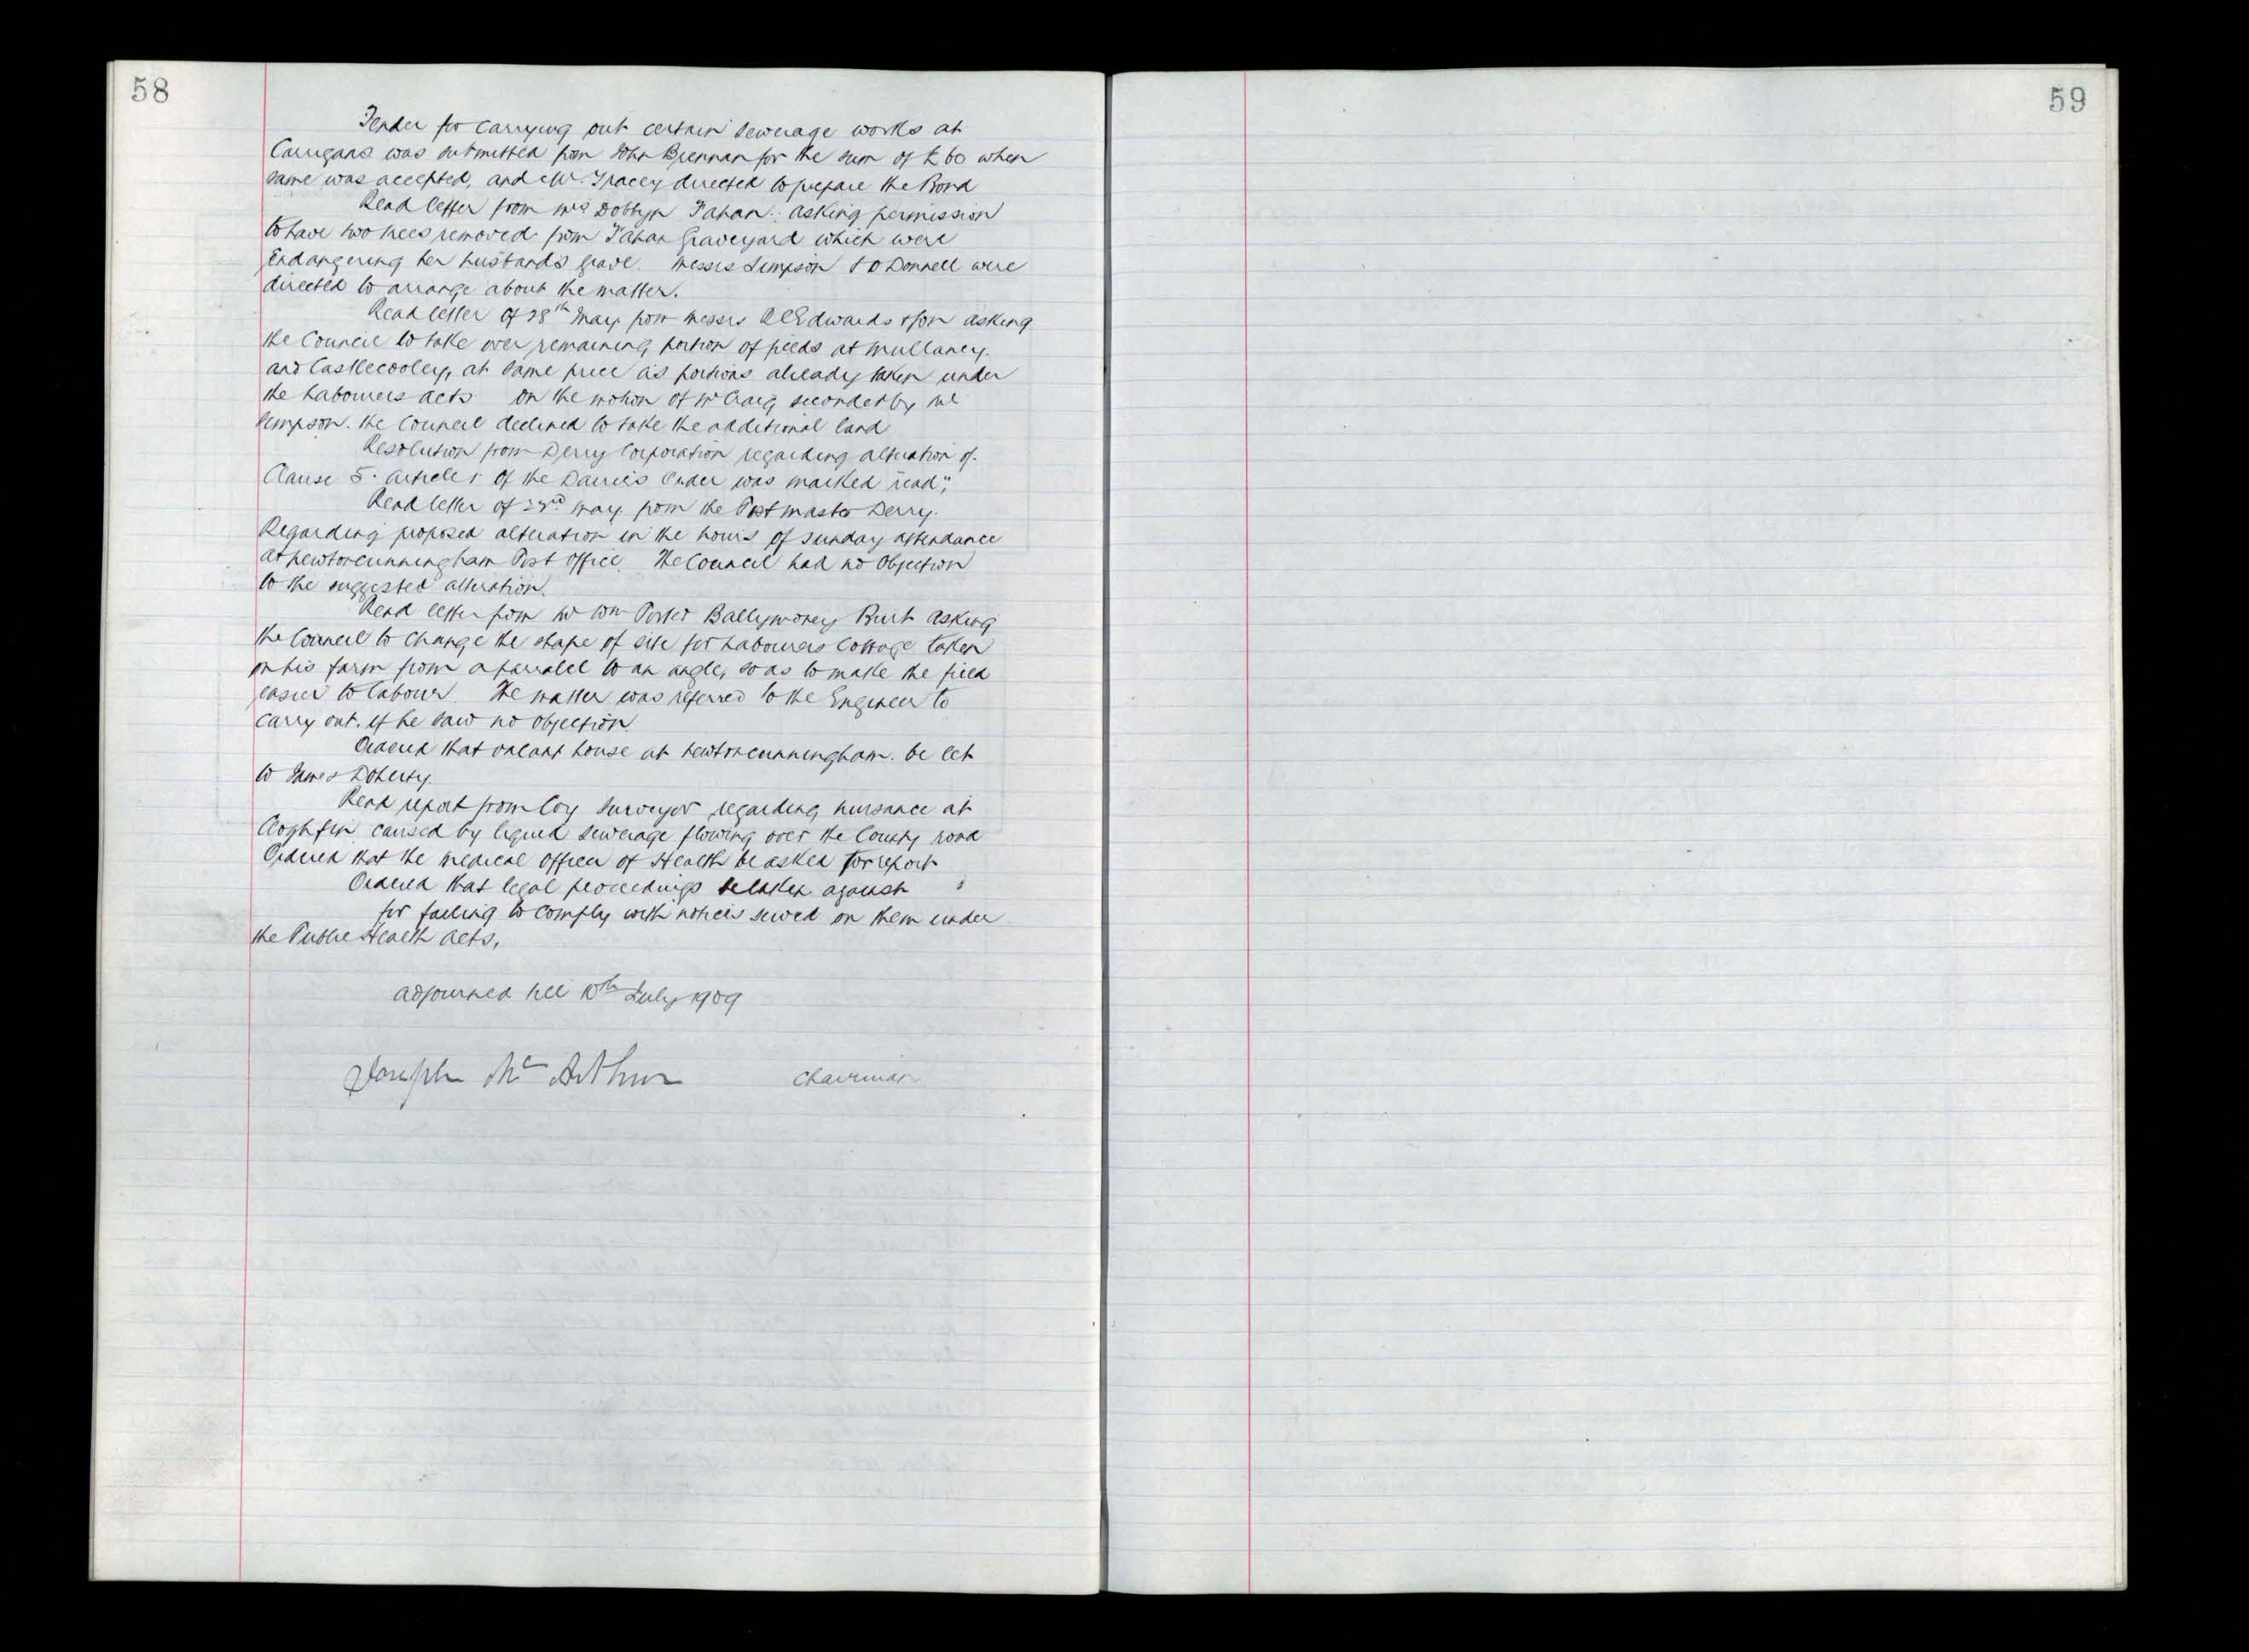 58
Tender for carrying out certain sewerage works at
Carrigans was submitted from John Brennan for the sum of £60 when
same was accepted, and Mr. Tracey directed to prepare the Bond
Read letter from Mrs Dobbyn Fahan. asking permission
to have two trees removed from Fahan Graveyard which were
Endangering her husbands grave. Messrs Simpson & O Donnell were
directed to arrange about the matter.
Read letter of 28th May from Messrs Edwards & Son asking
the Council to take over remaining portion of fields at Mullaney
and Castlecooley, at same price as portions already taken under
the Labourers Acts on the motion of Mr Craig seconded by Mr
Simpson. the Council declined to take the additional land
Resolution from Derry Corporation regarding alteration of
Clause 5. Article 1 of the Dairies Order was marked "read",
Read letter of 22nd May from the Postmaster Derry.
Regarding proposed alteration in the hours of Sunday attendance
at Newtoncunningham Post Office. The Council had no Objection
to the suggested alteration.
Read letter from Mr Wm Porter Ballymoney Burt asking
the Council to change the shape of site for Labourers Cottage taken
on his farm from a parralel to an angle, so as to make the field
easier to labour. The matter was referred to the Engineer to
carry out. if he saw no objection.
Ordered that vacant house at Newtoncunningham. be let
to James Doherty.
Read report from Coy Surveyor regarding nuisance at
Cloghfin caused by liquid sewerage flowing over the County road
Ordered that the Medical Officer of Health be asked for report
Ordered that legal proceedings be taken against
for failing to comply with notices served on them under
the Public Health Acts,
adjourned till 10th July 1909
Joseph McArthur chairman
59